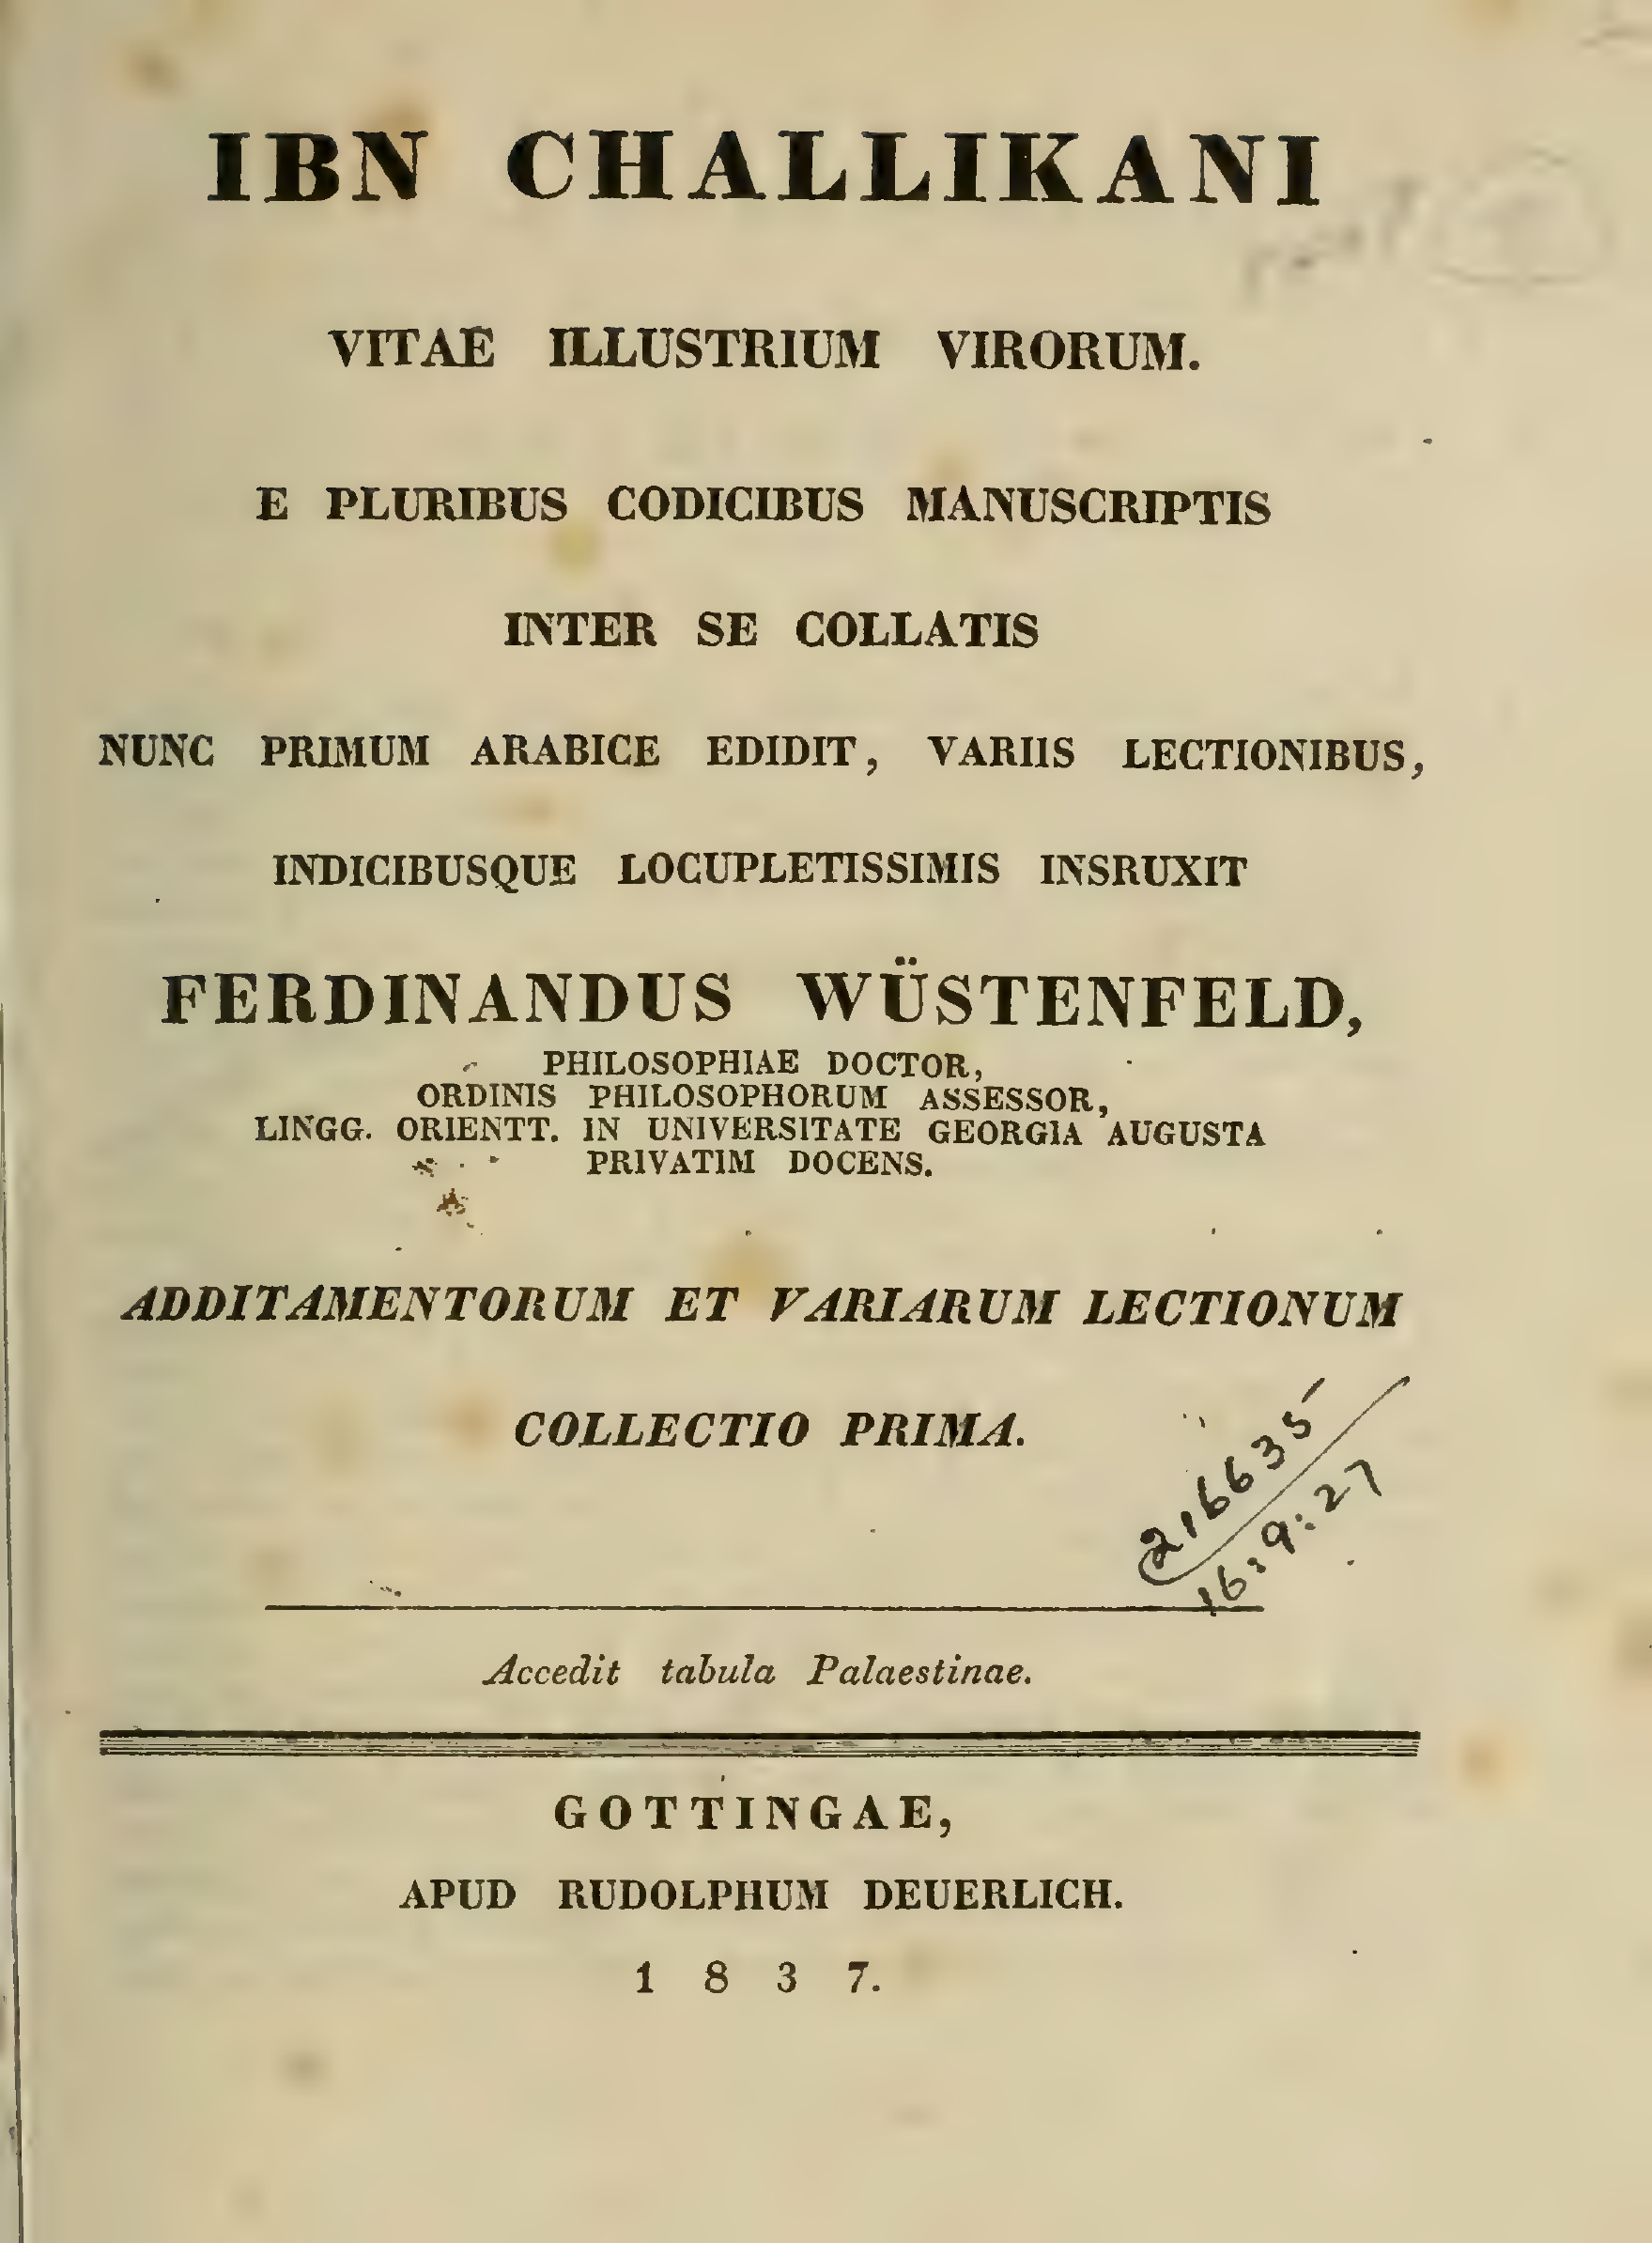 IBN CHALLIKANI
VITAE ILLUSTRIUM VIRORUM.
E PLURIBUS CODICIBUS MANUSCRIPTIS
INTER SE COLLATIS
NUNC PRIMUM ARABICE EDIDIT, VARIIS LECTIONIBUS,
INDICIBUSQUE LOCUPLETISSIMIS INSRUXIT
FERDINANDUS WÜSTENFELD,
PHILOSOPHIAE DOCTOR,
ORDINIS PHILOSOPHORUM ASSESSOR,
LINGG. ORIENTT. IN UNIVERSITATE GEORGIA AUGUSTA
PRIVATIM DOCENS.
ADDITAMENTORUM ET VARIARUM LECTIONUM
COLLECTIO PRIMA.
216635
16:9:27
Accedit tabula Palaestinae.
GOTTINGAE,
APUD RUDOLPHUM DEUERLICH.
1 8 3 7.